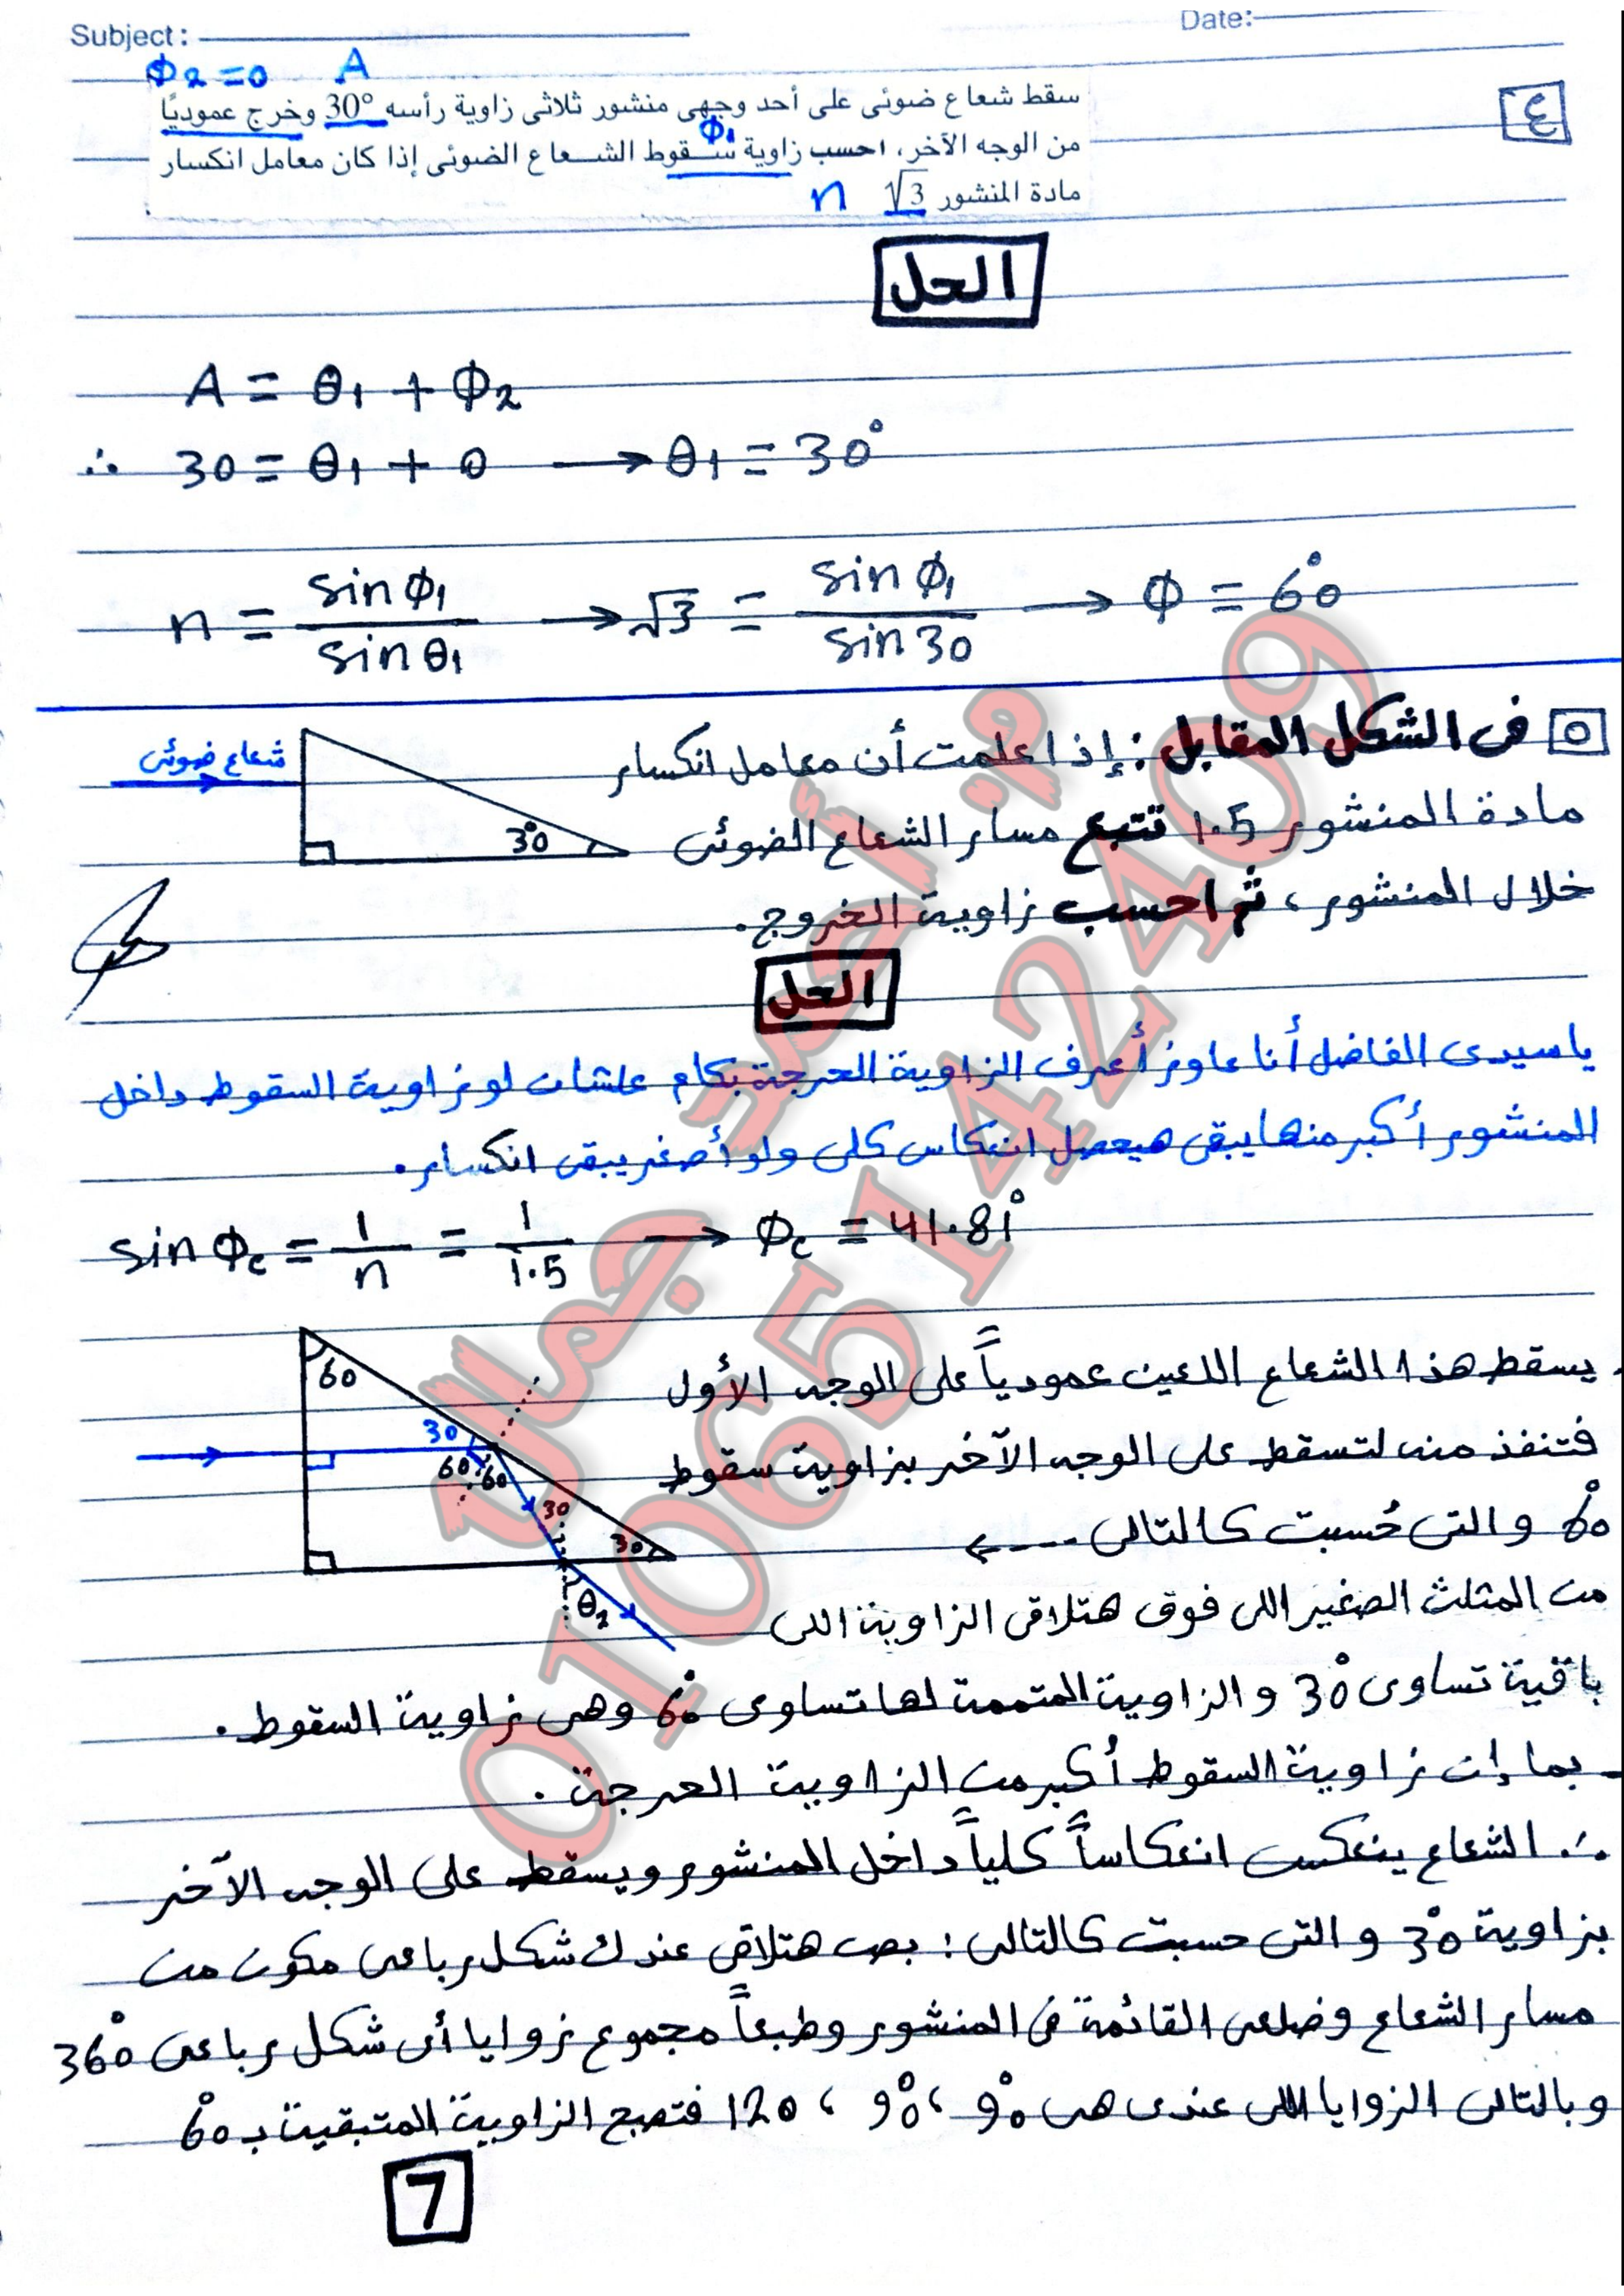 Subject:
Date:
Φ2 = 0 A
٤
سقط شعاع ضوئى على أحد وجهى منشور ثلاثى زاوية رأسه 30° وخرج عموديًا
Φ1
من الوجه الآخر، احسب زاوية سقوط الشعاع الضوئى إذا كان معامل انكسار
مادة المنشور √3 n
الحل
A = θ1 + Φ2
∴ 30 = θ1 + 0 → θ1 = 30°
n = sin Φ1 / sin θ1 → √3 = sin Φ1 / sin 30 → Φ = 60°
٥ فى الشكل المقابل : إذا علمت أن معامل انكسار
شعاع ضوئى
30°
مادة المنشور 1.5 تتبع مسار الشعاع الضوئى
خلال المنشور ، ثم احسب زاوية الخروج.
الحل
ياسيدى الفاضل أنا عاوز أعرف الزاوية الحرجة بكام علشان لو زاوية السقوط داخل
المنشور أكبر منها يبقى هيحصل انعكاس كلى ولو أصغر يبقى انكسار.
sin Φc = 1 / n = 1 / 1.5 → Φc = 41.81°
- يسقط هذا الشعاع اللعين عمودياً على الوجه الأول
فتنفذ منه لتسقط على الوجه الآخر بزاوية سقوط
60° والتى حُسبت كالتالى ---->
60
30
60 60
30
30
θ2
من المثلث الصغير اللى فوق هتلاقى الزاوية اللى
باقية تساوى 30° والزاوية المتممة لها تساوى 60° وهى زاوية السقوط.
- بما إن زاوية السقوط أكبر من الزاوية الحرجة.
∴ الشعاع ينعكس انعكاساً كلياً داخل المنشور ويسقط على الوجه الآخر
بزاوية 30° والتى حسبت كالتالى : بص هتلاقى عندك شكل رباعى مكون من
مسار الشعاع وضلعى القائمة فى المنشور وطبعاً مجموع زوايا أى شكل رباعى 360°
وبالتالى الزوايا اللى عندى هى 90° ، 90° ، 120 فتصبح الزاوية المتبقية بـ 60°
7
م. أحمد جمال
01065142409